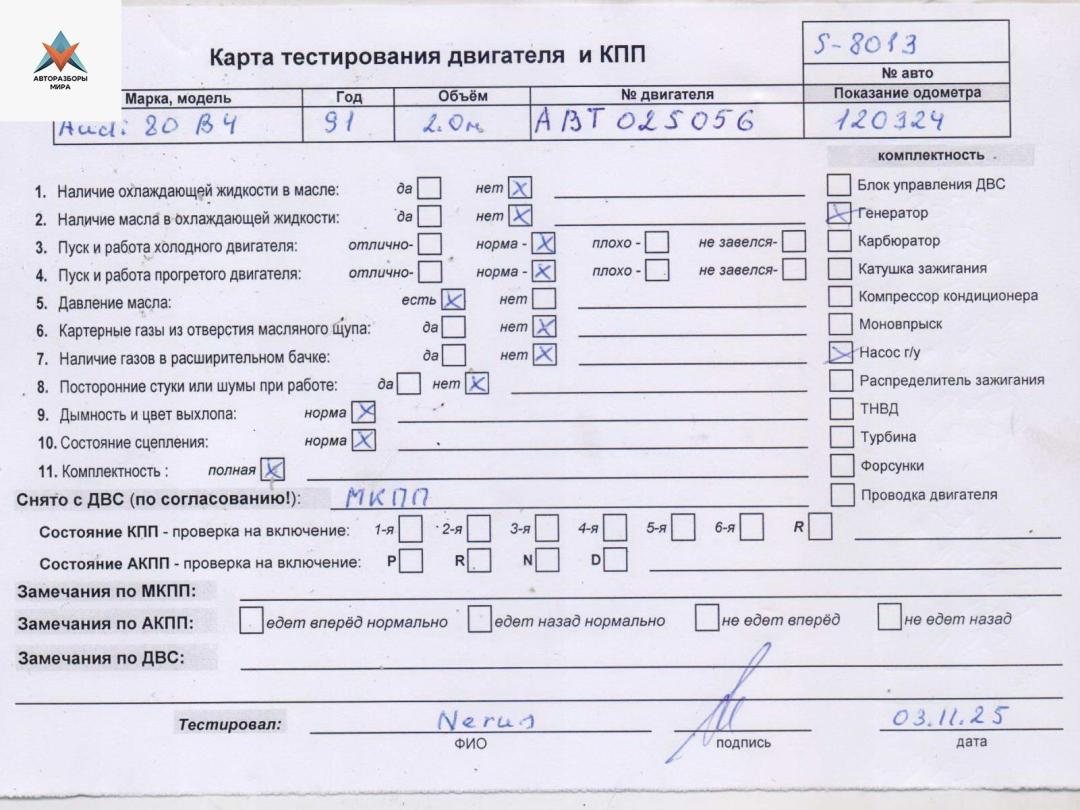 АВТОРАЗБОРЫ
МИРА
Карта тестирования двигателя и КПП
S-8013
№ авто
Марка, модель Год Объём № двигателя Показание одометра
Audi 80 B4 91 2.0м ABT 025056 120324
комплектность
1. Наличие охлаждающей жидкости в масле: да нет X
Блок управления ДВС
2. Наличие масла в охлаждающей жидкости: да нет X
X Генератор
3. Пуск и работа холодного двигателя: отлично- норма - X плохо - не завелся-
Карбюратор
4. Пуск и работа прогретого двигателя: отлично- норма - X плохо - не завелся-
Катушка зажигания
5. Давление масла: есть X нет
Компрессор кондиционера
6. Картерные газы из отверстия масляного щупа: да нет X
Моновпрыск
7. Наличие газов в расширительном бачке: да нет X
X Насос г/у
8. Посторонние стуки или шумы при работе: да нет X
Распределитель зажигания
9. Дымность и цвет выхлопа: норма X
ТНВД
10. Состояние сцепления: норма X
Турбина
11. Комплектность : полная X
Форсунки
Снято с ДВС (по согласованию!): МКПП
Проводка двигателя
Состояние КПП - проверка на включение: 1-я 2-я 3-я 4-я 5-я 6-я R
Состояние АКПП - проверка на включение: P R N D
Замечания по МКПП:
Замечания по АКПП: едет вперёд нормально едет назад нормально не едет вперёд не едет назад
Замечания по ДВС:
Тестировал: Nerus 03.11.25
ФИО подпись дата